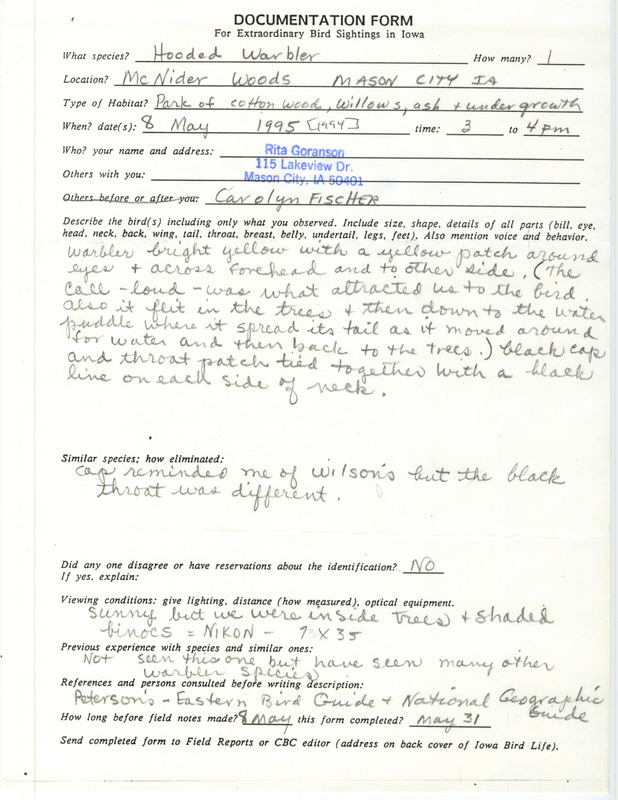 DOCUMENTATION FORM
For Extraordinary Bird Sightings in Iowa
What species? Hooded Warbler How many? 1
Location? McNider Woods MASON CITY IA
Type of Habitat? Park of cottonwood, willows, ash + undergrowth
When? date(s): 8 May 1995 [1994] time: 3 to 4 pm
Who? your name and address: Rita Goranson
115 Lakeview Dr.
Others with you: Mason City, IA 50401
Others before or after you: Carolyn FISCHER
Describe the bird(s) including only what you observed. Include size, shape, details of all parts (bill, eye,
head, neck, back, wing, tail, throat, breast, belly, undertail, legs, feet). Also mention voice and behavior.
Warbler bright yellow with a yellow patch around
eyes + across forehead and to other side. (The
call - loud - was what attracted us to the bird
also it flit in the trees + then down to the water
puddle where it spread its tail as it moved around
for water and then back to the trees.) black cap
and throat patch tied together with a black
line on each side of neck.
Similar species; how eliminated:
Cap reminded me of Wilson's but the black
throat was different.
Did any one disagree or have reservations about the identification? NO
If yes, explain:
Viewing conditions: give lighting, distance (how measured), optical equipment.
Sunny but we were inside trees + shaded
binocs = NIKON - X 35
Previous experience with species and similar ones:
Not seen this one but have seen many other
warbler species
References and persons consulted before writing description:
Peterson's - Eastern Bird Guide + National Geographic
Guide
How long before field notes made? 8 May this form completed? May 31
Send completed form to Field Reports or CBC editor (address on back cover of Iowa Bird Life).